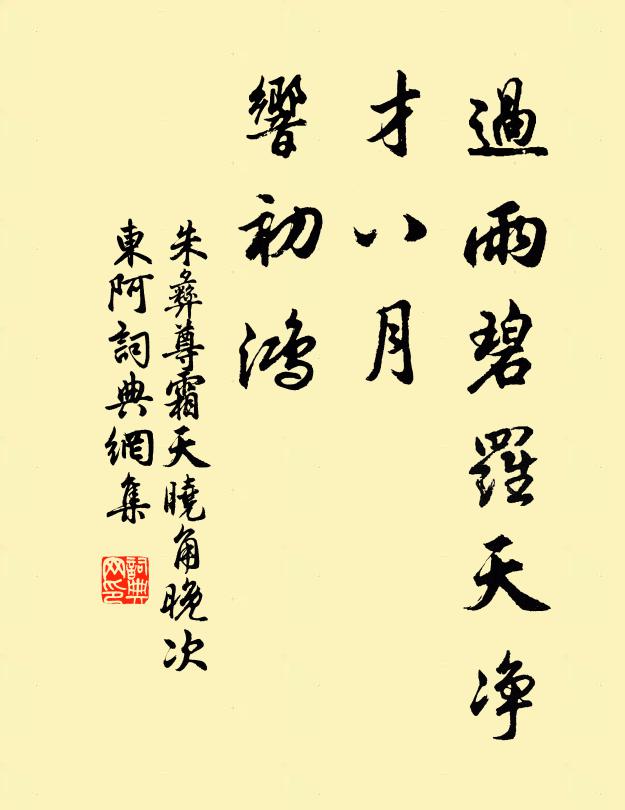 過雨碧羅天净
才八月
響初鴻
朱彝尊霜天曉角晚次
東阿詞典網集
詞典网印